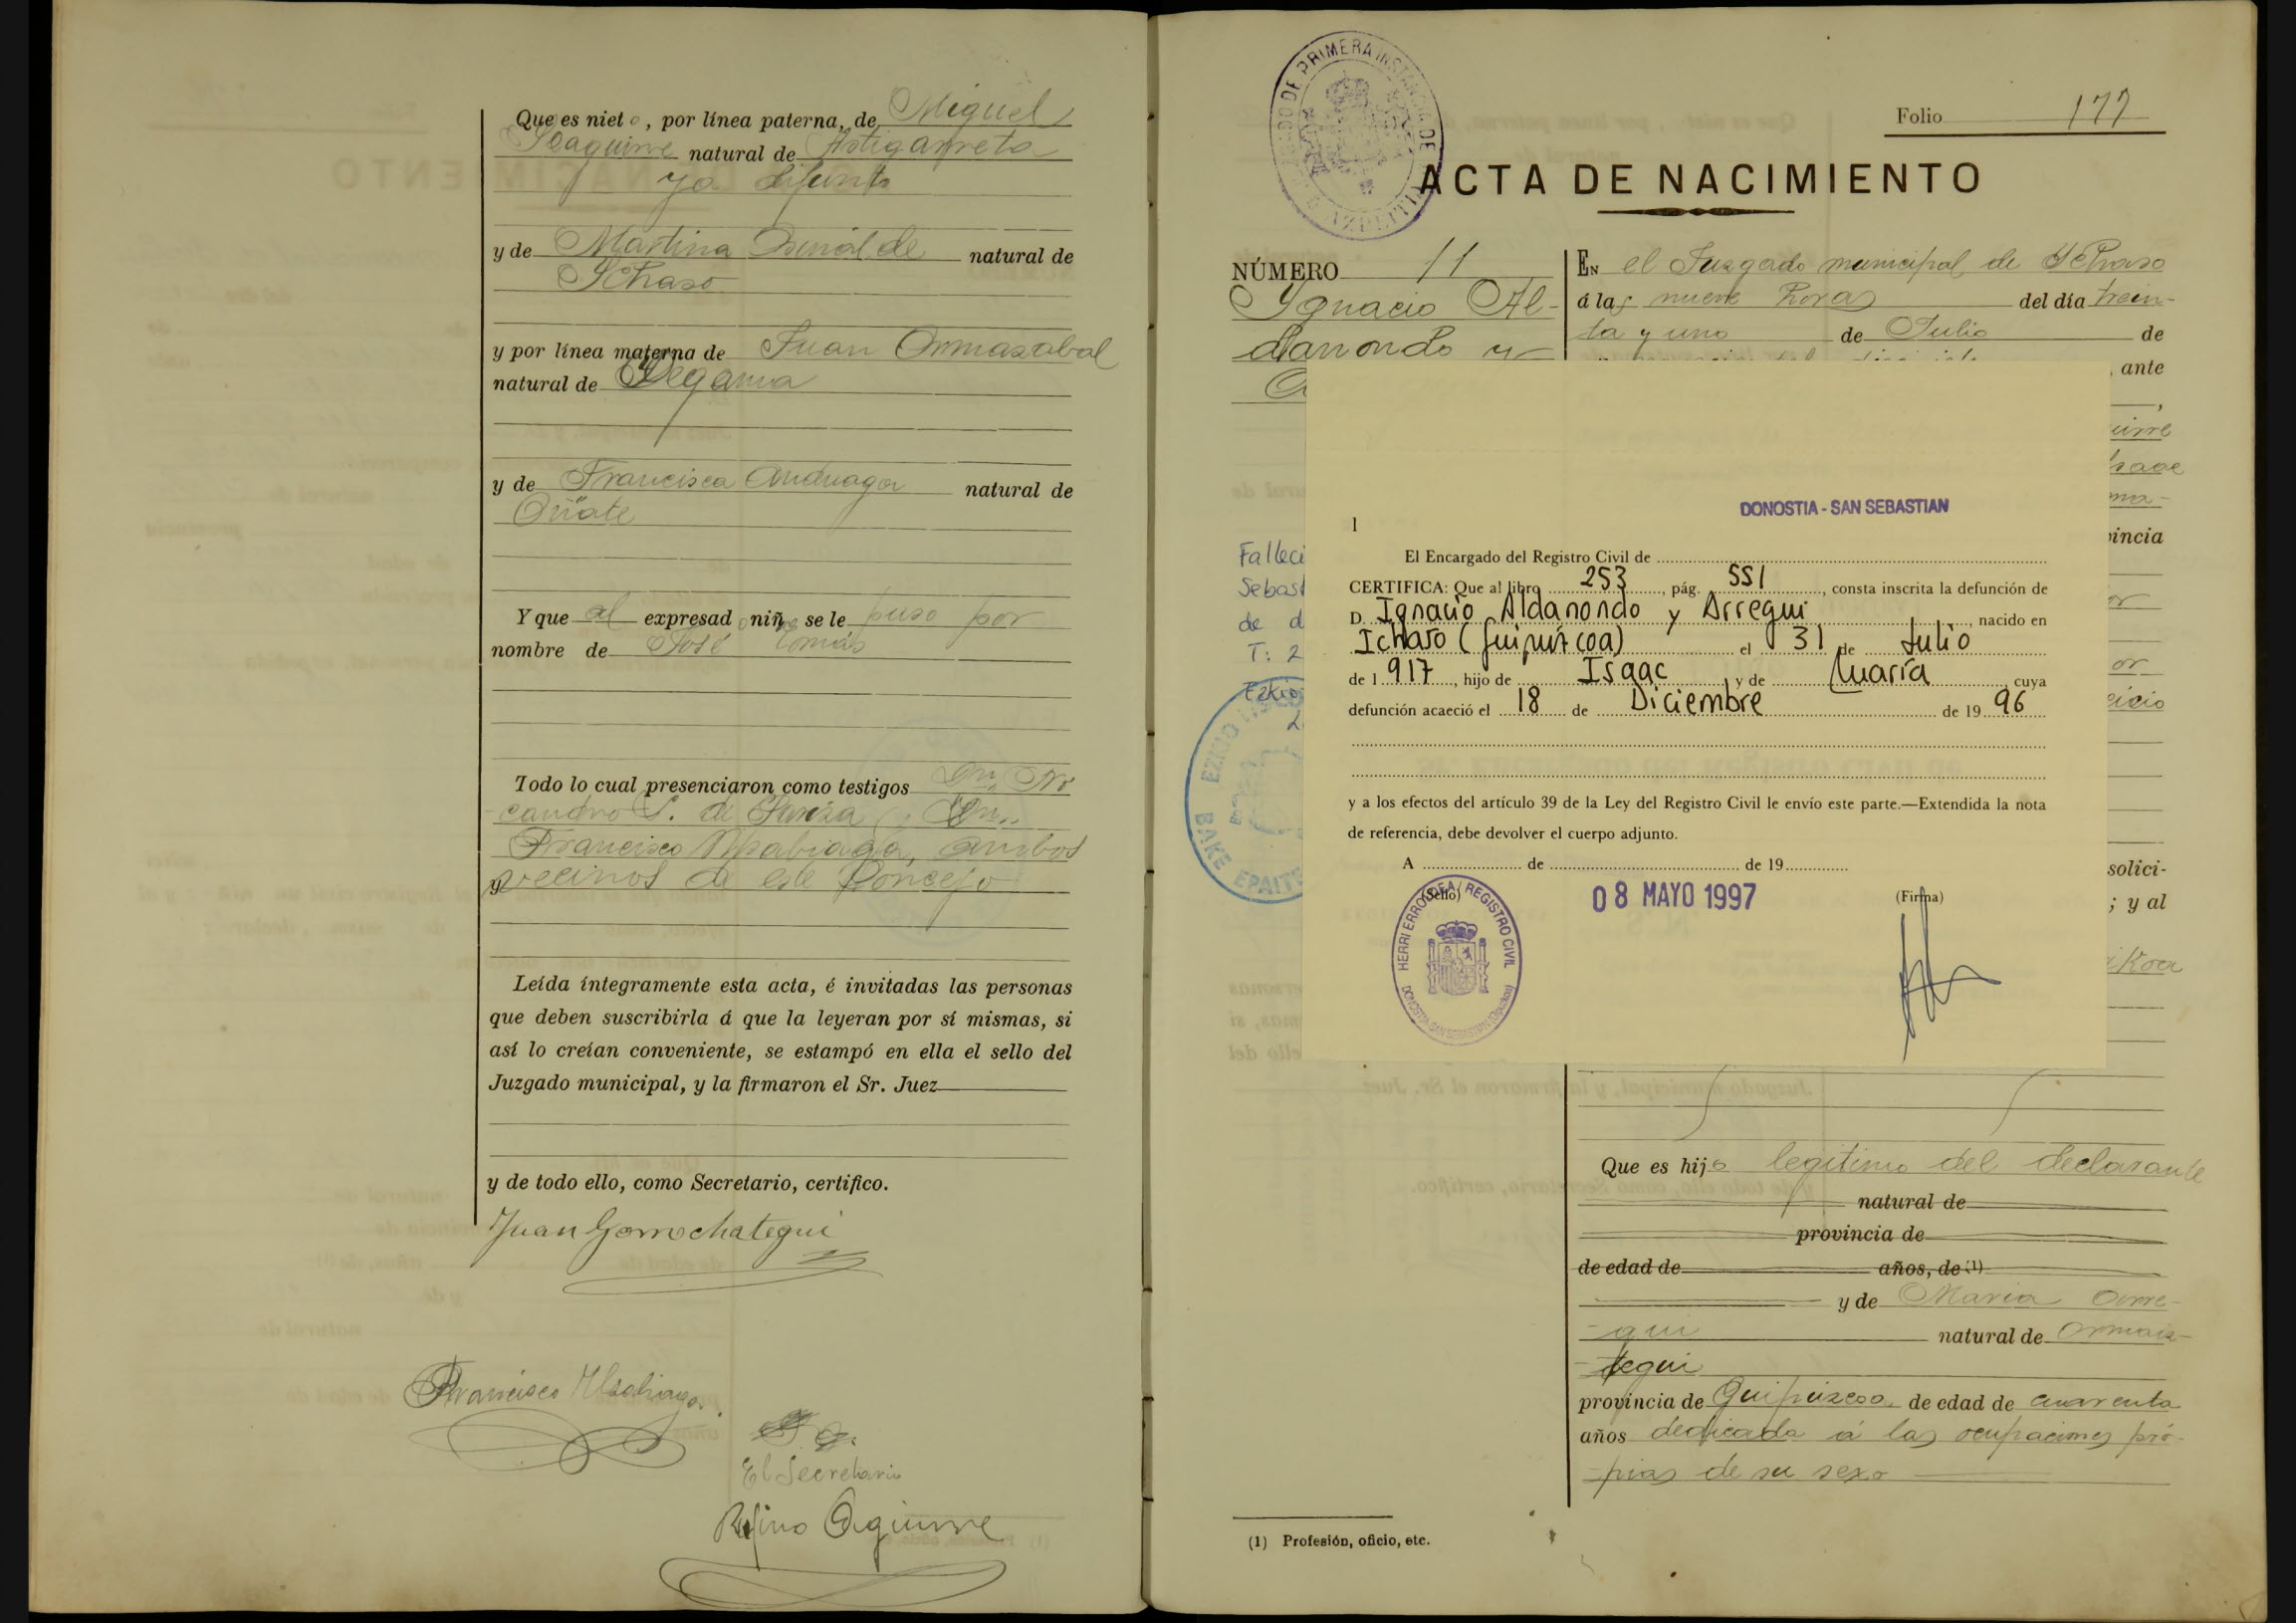 Que es nieto, por línea paterna, de Miguel
natural de Astigarreta
ya difunto
y de Martina natural de
Ichaso
y por línea materna de Juan Ormazabal
natural de Segama
y de Francisca Anduaga natural de
Oñate
Y que al expresado niño se le puso por
nombre de José Tomás
Todo lo cual presenciaron como testigos Dn. Ni-
-candro S. de
Francisco ambos
vecinos de este Concejo
Leída íntegramente esta acta, é invitadas las personas
que deben suscribirla á que la leyeran por sí mismas, si
así lo creían conveniente, se estampó en ella el sello del
Juzgado municipal, y la firmaron el Sr. Juez
y de todo ello, como Secretario, certifico.
Juan Gorrochategui
Francisco
El Secretario
Rufino Aguirre
Folio 177
JUZGADO DE PRIMERA INSTANCIA DE AZPEITIA
ACTA DE NACIMIENTO
NÚMERO 11
Ygnacio Al-
danondo y
EN el Juzgado municipal de Ychaso
á las nueve horas del día trein-
ta y uno de Julio de
, ante
,
uirre
Isaac
ma-
vincia
or
or
icio
solici-
; y al
Falleci
Sebast
de d
T: 2
Ezkio
EZKIO
BAKE EPAITE
DONOSTIA - SAN SEBASTIAN
1
El Encargado del Registro Civil de
CERTIFICA: Que al libro 253, pág. 551, consta inscrita la defunción de
D. Ignacio Aldanondo y Arregui, nacido en
Ichaso (Guipúzcoa) el 31 de Julio
de 1.917, hijo de Isaac y de María cuya
defunción acaeció el 18 de Diciembre de 19 96
y a los efectos del artículo 39 de la Ley del Registro Civil le envío este parte.—Extendida la nota
de referencia, debe devolver el cuerpo adjunto.
A de de 19
(Sello) 08 MAYO 1997 (Firma)
HERRI ERROLDEA / REGISTRO CIVIL
DONOSTIA-SAN SEBASTIAN (Gipuzkoa)
Que es hijo legítimo del declarante
natural de
provincia de
de edad de años, de (1)
y de Maria Arre-
-gui natural de Ormaiz-
-tegui
provincia de Guipúzcoa de edad de cuarenta
años dedicada á las ocupaciones pro-
-pias de su sexo
(1) Profesión, oficio, etc.